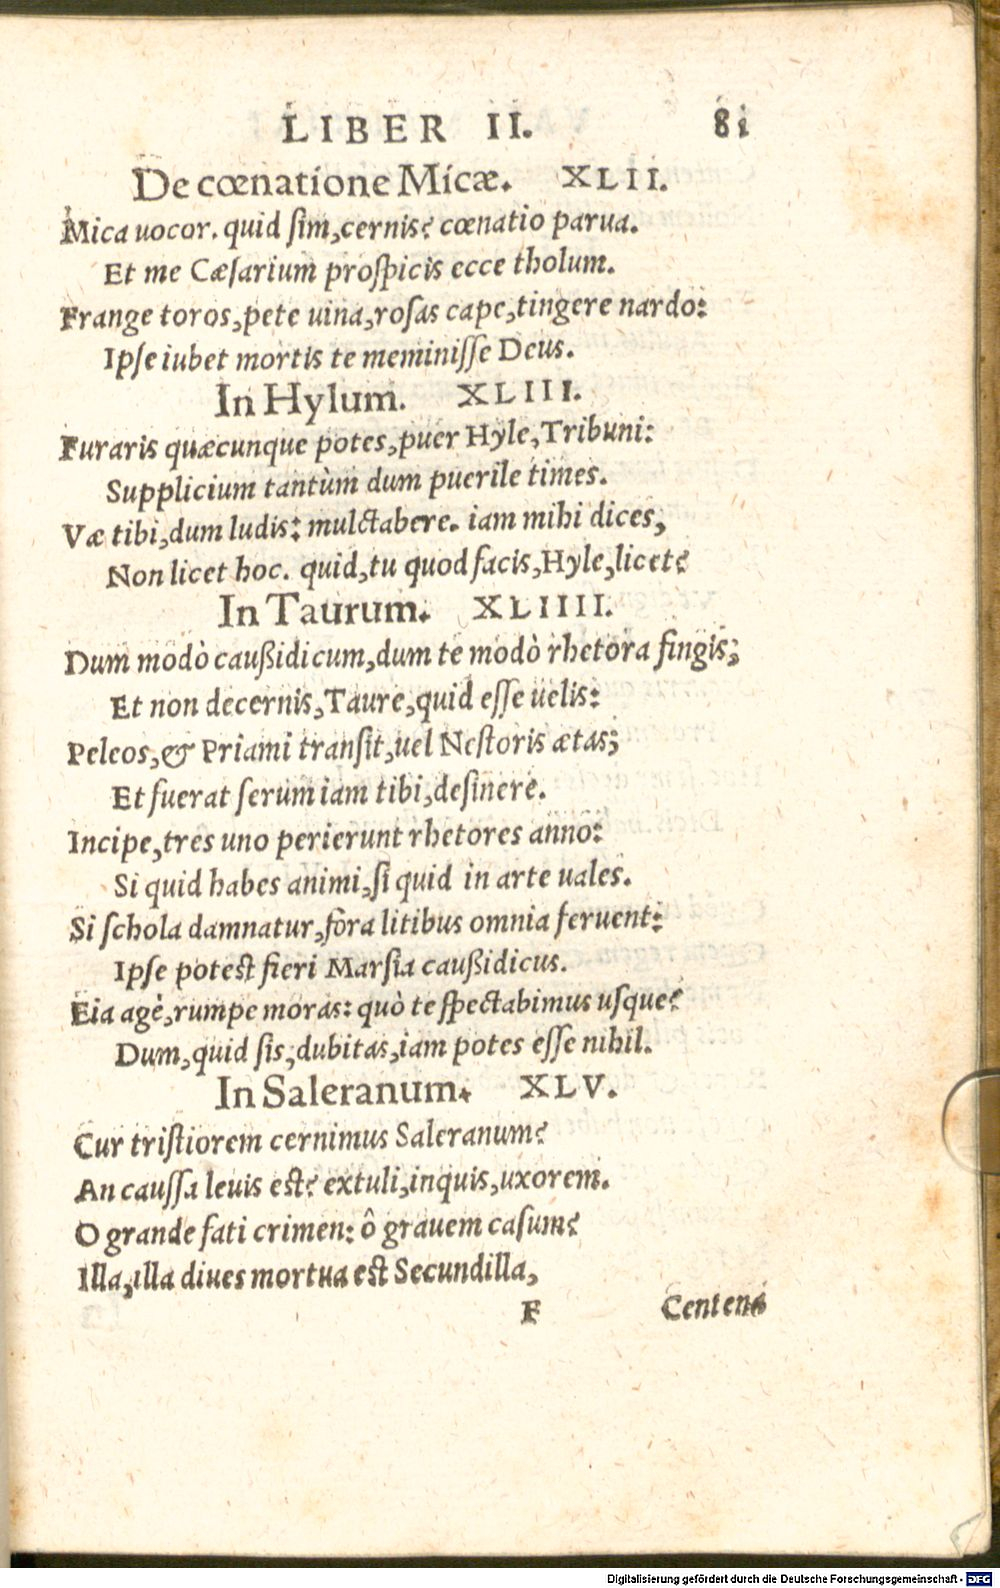 LIBER II. 81
De cœnatione Micæ. XLII.
Mica uocor. quid ſim, cernis? cœnatio parua.
Et me Cæſarium proſpicis ecce tholum.
Frange toros, pete uina, roſas cape, tingere nardo:
Ipſe iubet mortis te meminiſſe Deus.
In Hylum. XLIII.
Furaris quæcunque potes, puer Hyle, Tribuni:
Supplicium tantùm dum puerile times.
Væ tibi, dum ludis: mulctabere. iam mihi dices,
Non licet hoc. quid, tu quod facis, Hyle, licet?
In Taurum. XLIIII.
Dum modò caußidicum, dum te modò rhetora fingis;
Et non decernis, Taure, quid eſſe uelis:
Peleos, & Priami tranſit, uel Neſtoris ætas;
Et fuerat ſerum iam tibi, deſinere.
Incipe, tres uno perierunt rhetores anno:
Si quid habes animi, ſi quid in arte uales.
Si ſchola damnatur, fora litibus omnia feruent:
Ipſe poteſt fieri Marſia caußidicus.
Eia agè, rumpe moras: quò te ſpectabimus uſque?
Dum, quid ſis, dubitas, iam potes eſſe nihil.
In Saleranum. XLV.
Cur triſtiorem cernimus Saleranum?
An cauſſa leuis eſt? extuli, inquis, uxorem.
O grande fati crimen: ô grauem caſum?
Illa, illa diues mortua eſt Secundilla,
F Centena
Digitalisierung gefördert durch die Deutsche Forschungsgemeinschaft - DFG